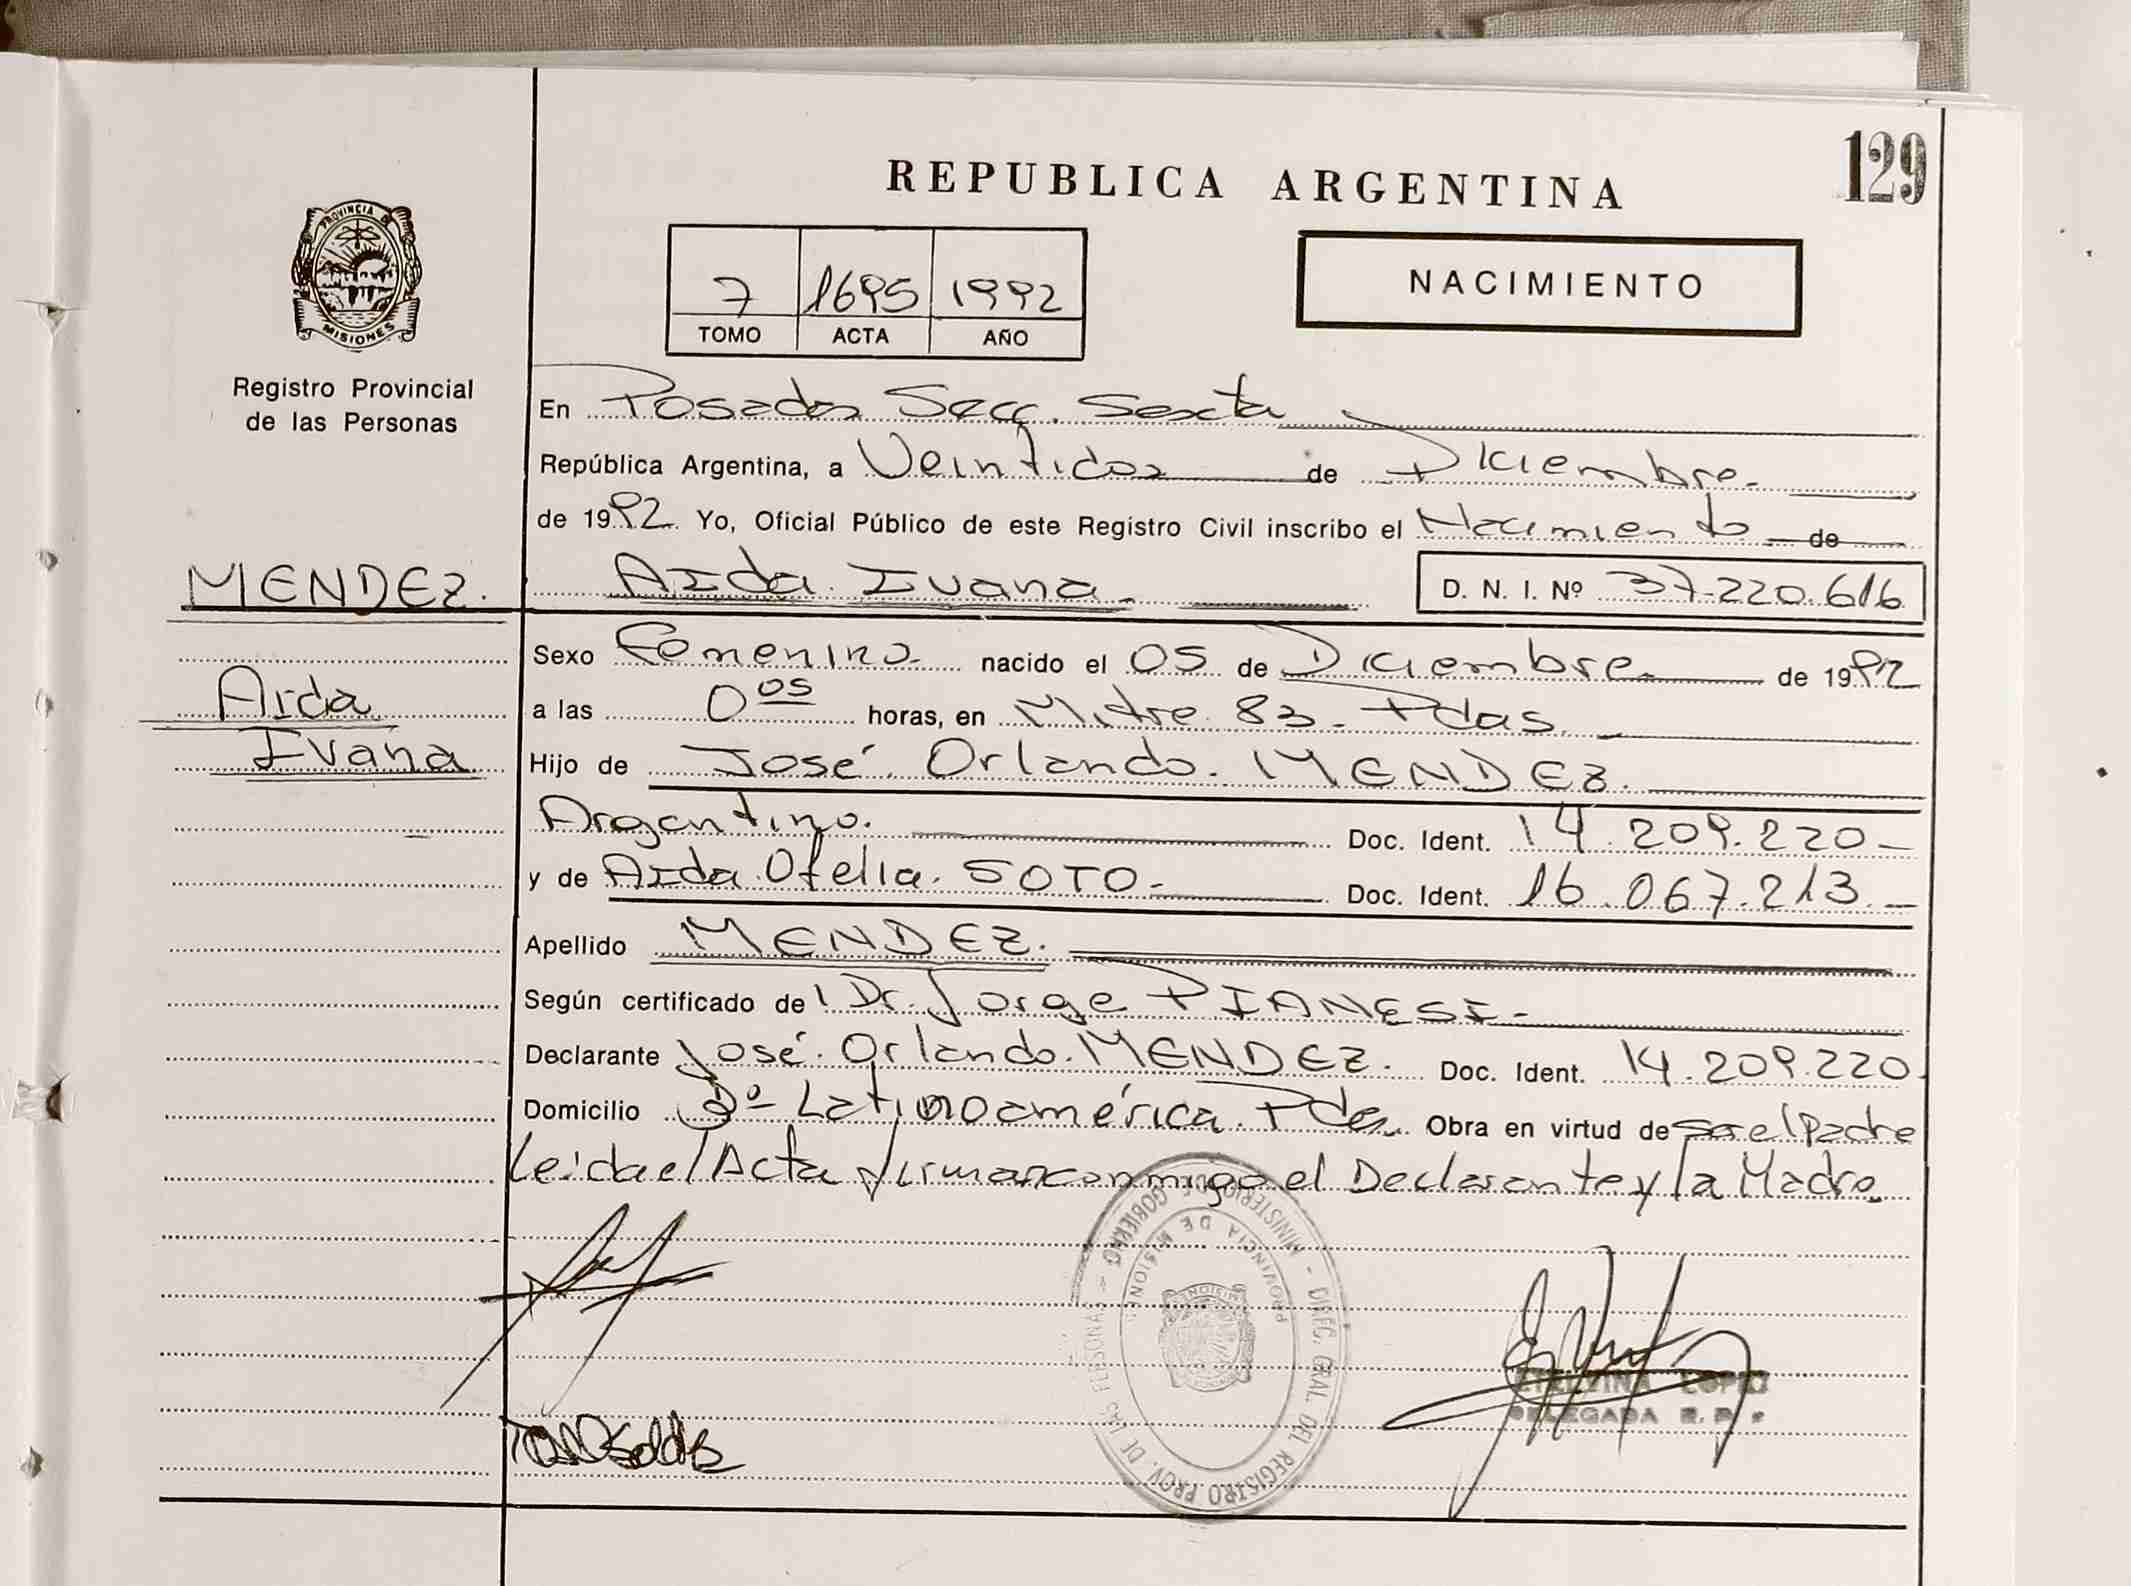 129
REPUBLICA ARGENTINA
PROVINCIA DE
MISIONES
7 1695 1992
TOMO ACTA AÑO
NACIMIENTO
Registro Provincial
de las Personas
En Posadas Secc. Sexta
República Argentina, a Veintidos de Diciembre
de 1992. Yo, Oficial Público de este Registro Civil inscribo el Nacimiento de
MENDEZ. Aida Ivana. D. N. I. Nº 37.220.616
Sexo Femenino. nacido el 05 de Diciembre de 1992
Aida a las 0 05 horas, en Mitre 83 - Pdas.
Ivana Hijo de José Orlando. MENDEZ.
Argentino. Doc. Ident. 14.209.220-
y de Aida Ofelia. SOTO- Doc. Ident. 16.067.213.-
Apellido MENDEZ.
Según certificado del Dr. Jorge PIANESI-
Declarante José Orlando. MENDEZ. Doc. Ident. 14.209.220.
Domicilio Latinoamérica. Pdas Obra en virtud de Ser el Padre
Leida el Acta firman conmigo el Declarante y la Madre
MINISTERIO DE GOBIERNO - DIREC. GRAL. DEL REGISTRO PROV. DE LAS PERSONAS -
PROVINCIA DE MISIONES
LOPEZ
DELEGADA R. P.